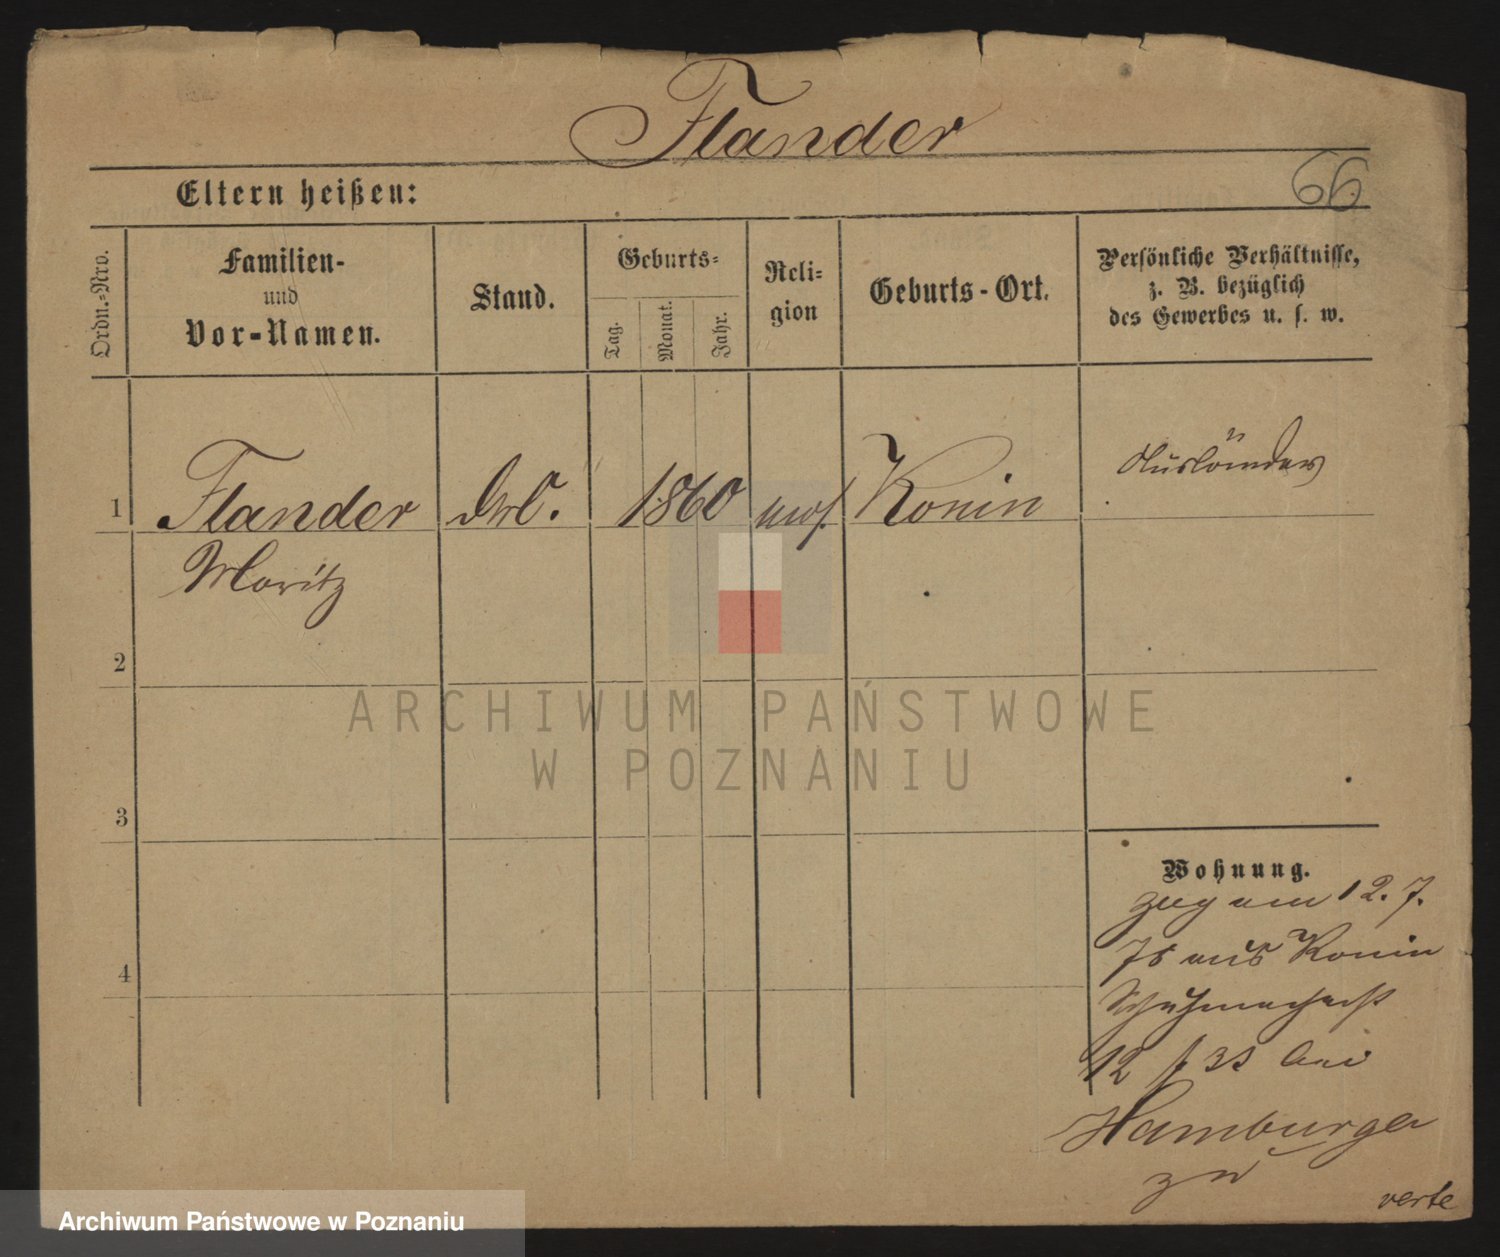 Flander
66
Eltern heißen:
Ordn.-Nro.
Familien-
und
Vor-Namen.
Stand.
Geburts-
Tag.
Monat.
Jahr.
Reli-
gion
Geburts-Ort.
Persönliche Verhältnisse,
z. B. bezüglich
des Gewerbes u. s. w.
1
Flander
1860
mos.
Konin
Ausländer
Moritz
2
ARCHIWUM PAŃSTWOWE
W POZNANIU
3
Wohnung.
am 12. 7.
78 aus Konin
4
12 bei
Hamburger
zu
verte
Archiwum Państwowe w Poznaniu